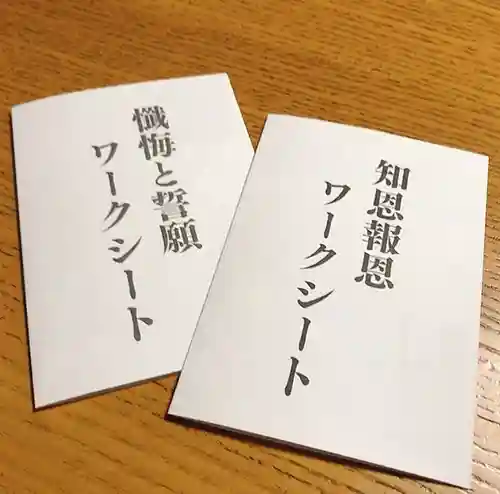 懺悔と誓願
ワークシート
知恩報恩
ワークシート